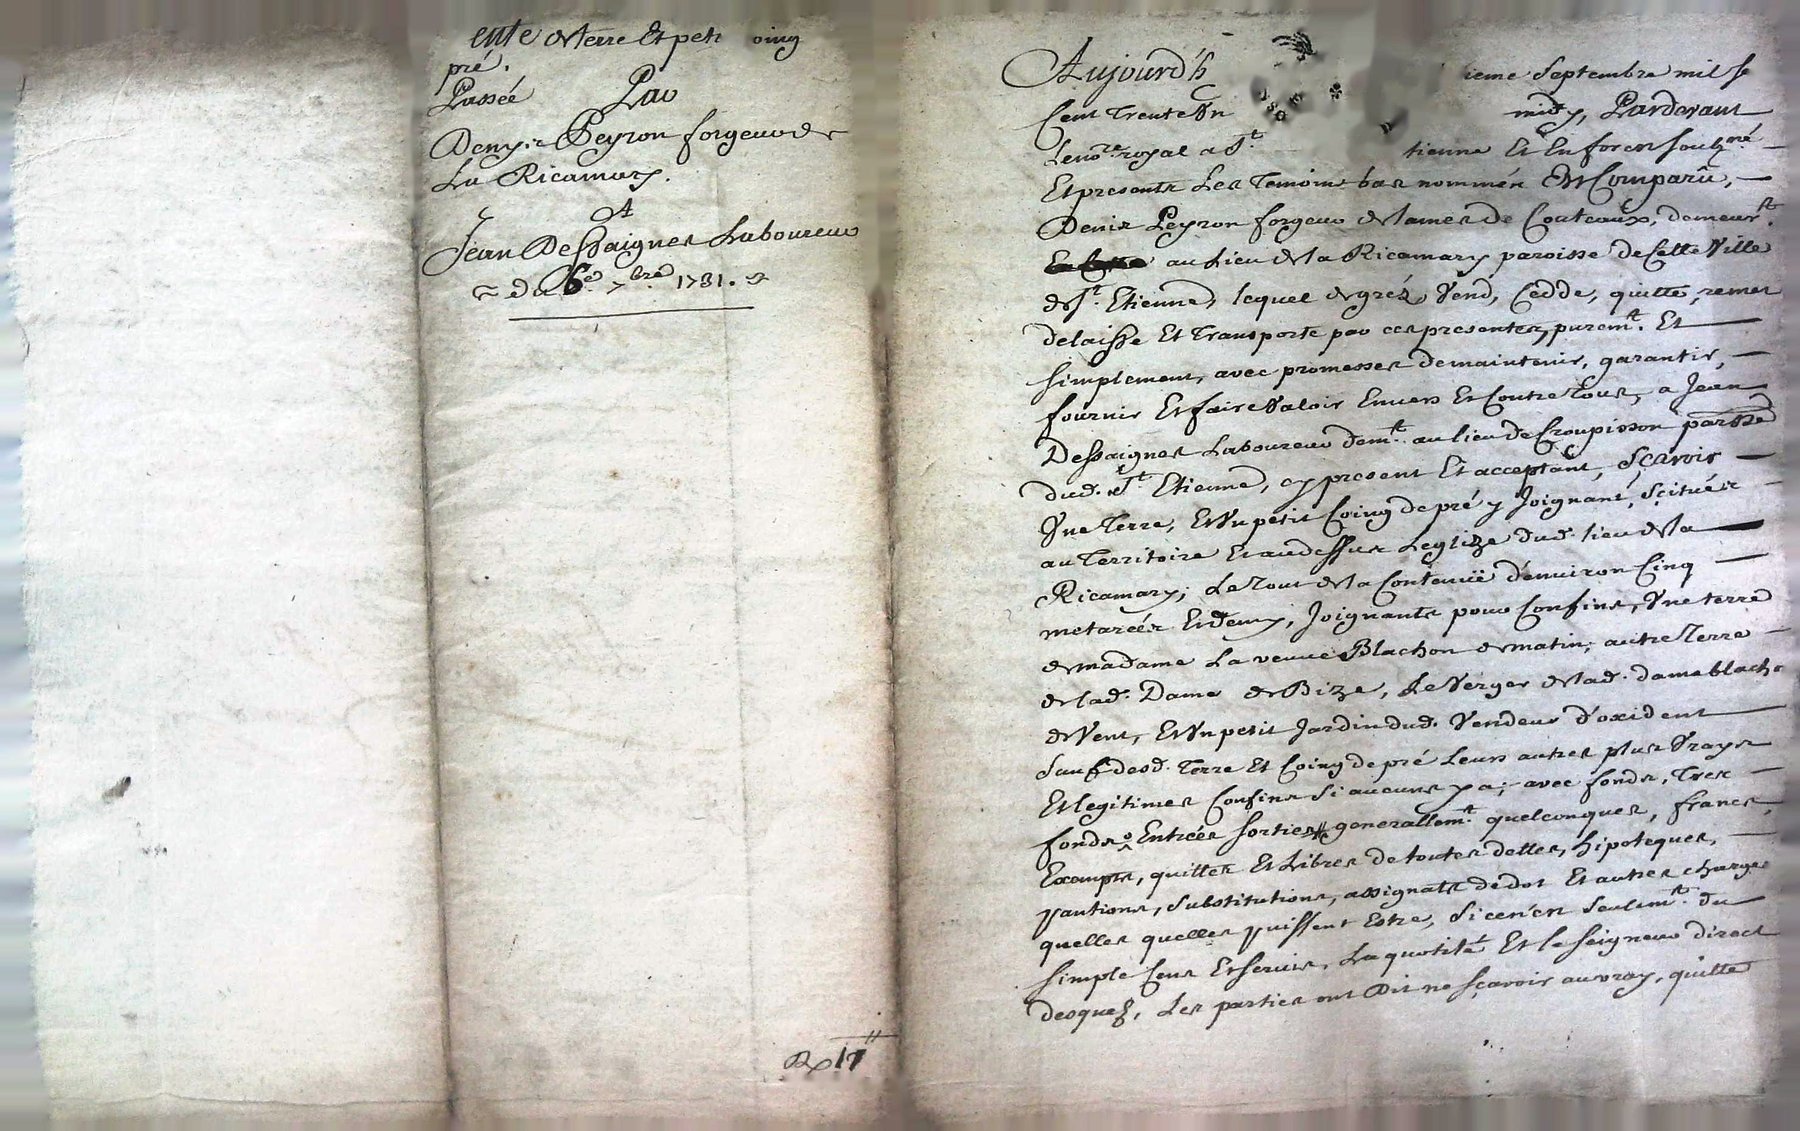 ente de terre et petit Coing
pré.
Passée Par
Denyz Peyron forgeur de
La Ricamary.
A
Jean Dessaignes Laboureur
du 6e. 7bre. 1731.
17
Aujourd'h ieme Septembre mil se
Cent Trente Un midy, Pardevant
Le nore. royal a St. tienne Et En forez soubzné.
Et presents Les Temoins bas nommés Est Comparû,
Denis Peyron forgeur de lames de Couteaux, demeurt.
au Lieu de la Ricamary paroisse de Cette Ville
de St. Etienne, lequel de gréz, Vend, Cedde, quitte, remet
delaisse Et Transporte par ces presentes, puremt. Et
simplement, avec promesses de maintenir, garantir,
fournir Et faire Valoir Envers Et Contre Tous, a Jean
Dessaignes Laboureur demt. au lieu de Croupisson parsse
dud. St. Etienne, cy present Et acceptant, Sçavoir
Une Terre, Et Un petit Coing de pré y Joignant, Scituéz
au Territoire Et au dessus Leglize dud. lieu de la
Ricamary; Le Tout de la Contenüe d'environ Cinq
metarées Et demy, Joignants pour Confins, Une terre
de madame La veuve Blachon de matin; autre Terre
de lad. Dame de Bize, Le Verger de lad. dame blacho
de Vent, Et Un petit Jardin dud. Vendeur d'oxident
Sauf desd. Terre Et Coing de pré Leurs autres plus Vrays
Et legitimes Confins Si aucuns y a; avec fonds, Tres
fonds, Entrées sorties generallemt. quelconques, francs,
Exempts, quittes Et Libres de toutes dettes, hipoteques,
pantions, Substitutions, assignats de dot Et autres charges
quelles quelles puissent Estre, Si ce n'est Seulemt. du
simple Cens Et servis, La quotité Et le Seigneur direct
desquelz, Les parties ont Dit ne sçavoir au vray, quitte